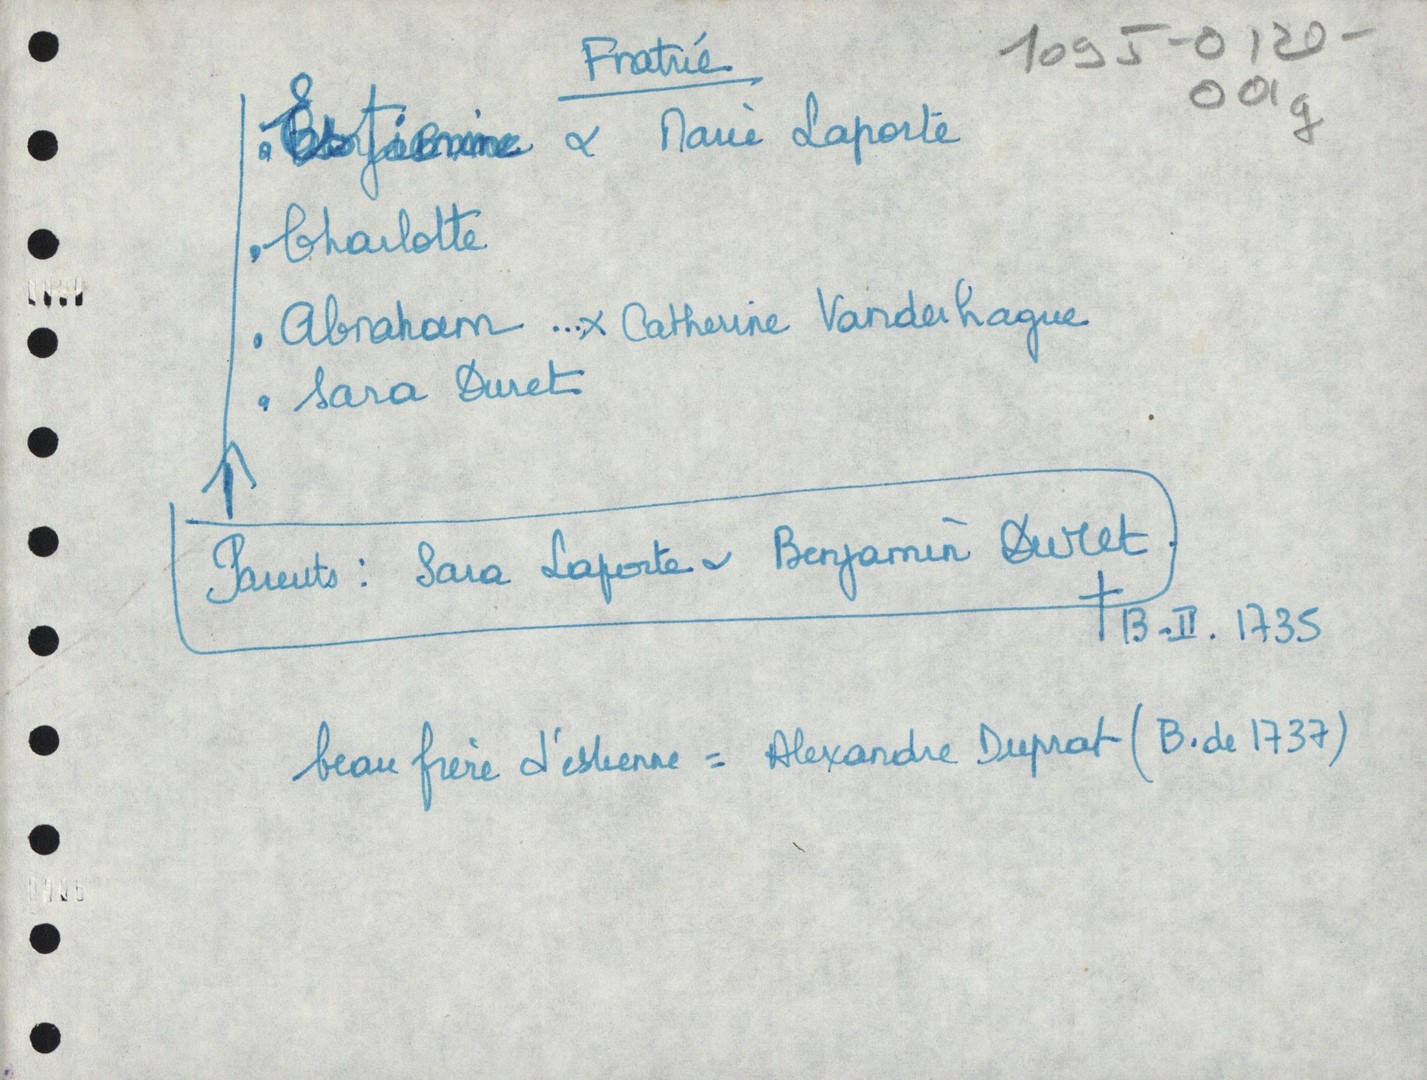 Fratrie
1095-0120-
001g
. Estienne α Marie Laporte
. Charlotte
. Abraham ...x Catherine Vanderhague
. Sara Duret
Parents : Sara Laporte α Benjamin Duret.
†B.II. 1735
beau frère d'estienne = Alexandre Duprat (B. de 1737)